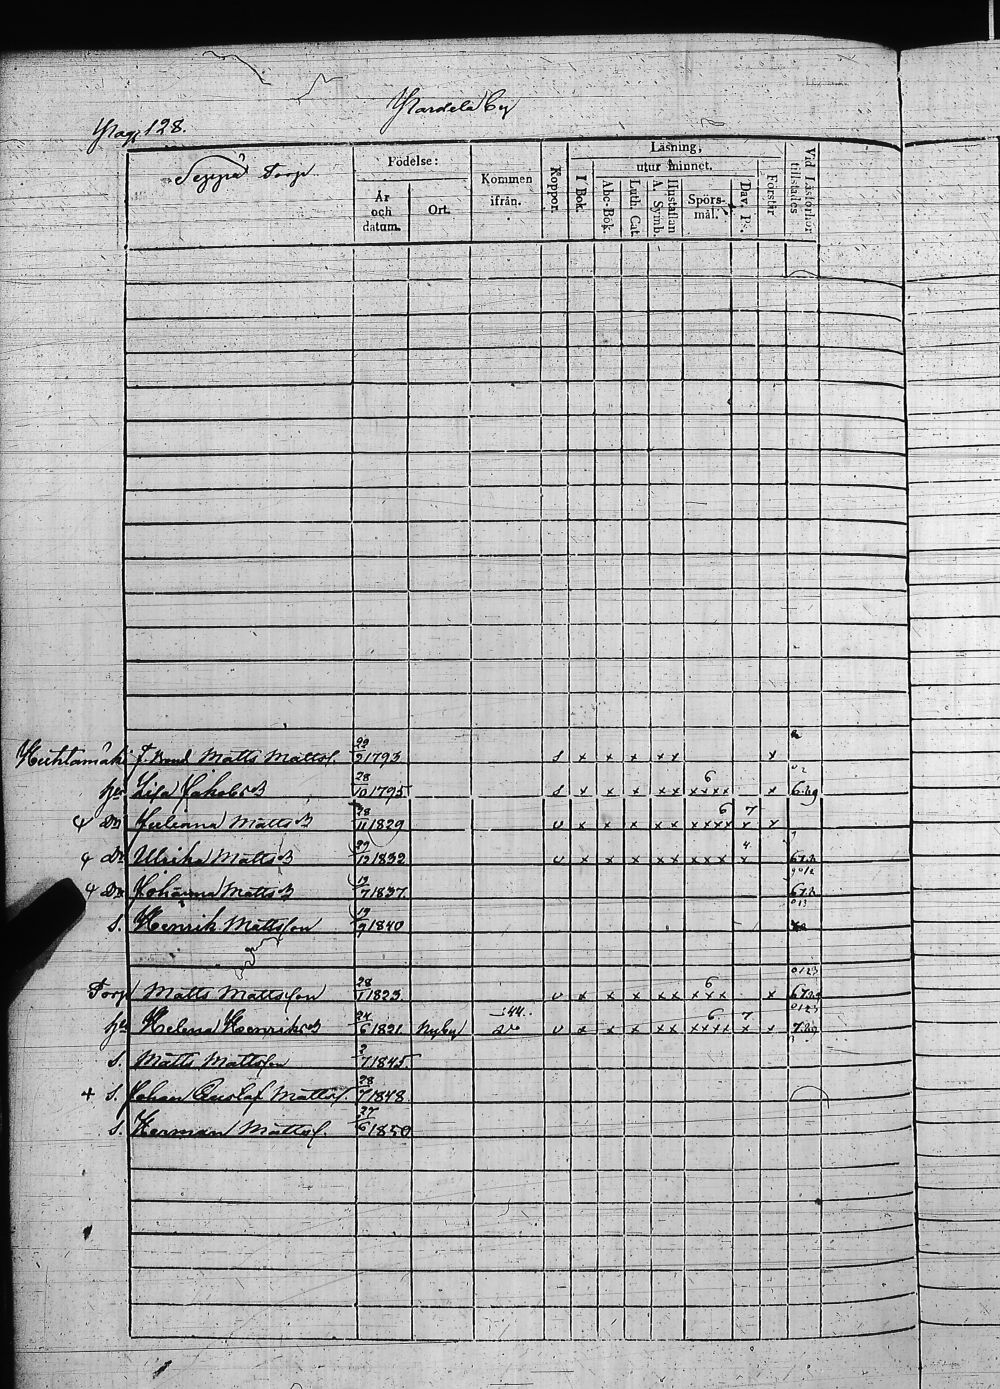 Pag. 128.
Nardela By
Seppä Torp
Födelse:
År och datum.
Ort.
Kommen ifrån.
Koppor.
Läsning,
I Bok.
utur minnet.
Abc-Bok.
Luth. Cat.
Hustaflan A. Symb.
Spörs-mål.
Dav. Ps.
Förstår
Vid Läsförhör tillstädes
Huhtamäki f. Bond Matts Mattss. 22/2 1793 s x x x x xx x
hu Lisa Jakobs D 28/10 1795 s x x x x xx xxxx 6
D Juliana Matts D 28/11 1829 v x x x x xx xxxx 6 x 7 x
D Ulrika Matts D 29/12 1832 v x x x x xx xxx x 4 673
D Johanna Matts D 19/7 1837. 673
S. Henrik Mattsson 19/9 1840
Torp Matts Mattsson 28/1 1823 v x x x x xx xxx 6 x
hu Helena Henriks D 24/6 1821 Nyby 44. v x x x x xx xxxx 6 x 7 x
S. Matts Mattsson 2/7 1845.
+ S. Johan Gustaf Mattss. 28/7 1848
S. Herman Mattss. 27/6 1850